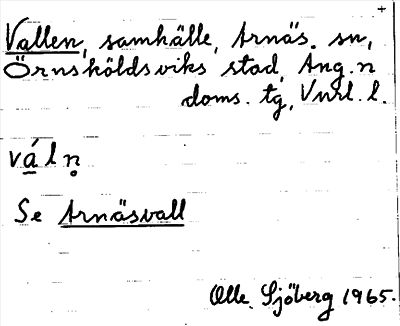 +
Vallen, samhälle, Arnäs. sn,
Örnsköldsviks stad, Ång. n
doms. tg, Vnrl. l.
vá̱ln̥
Se Arnäsvall
Olle Sjöberg 1965.